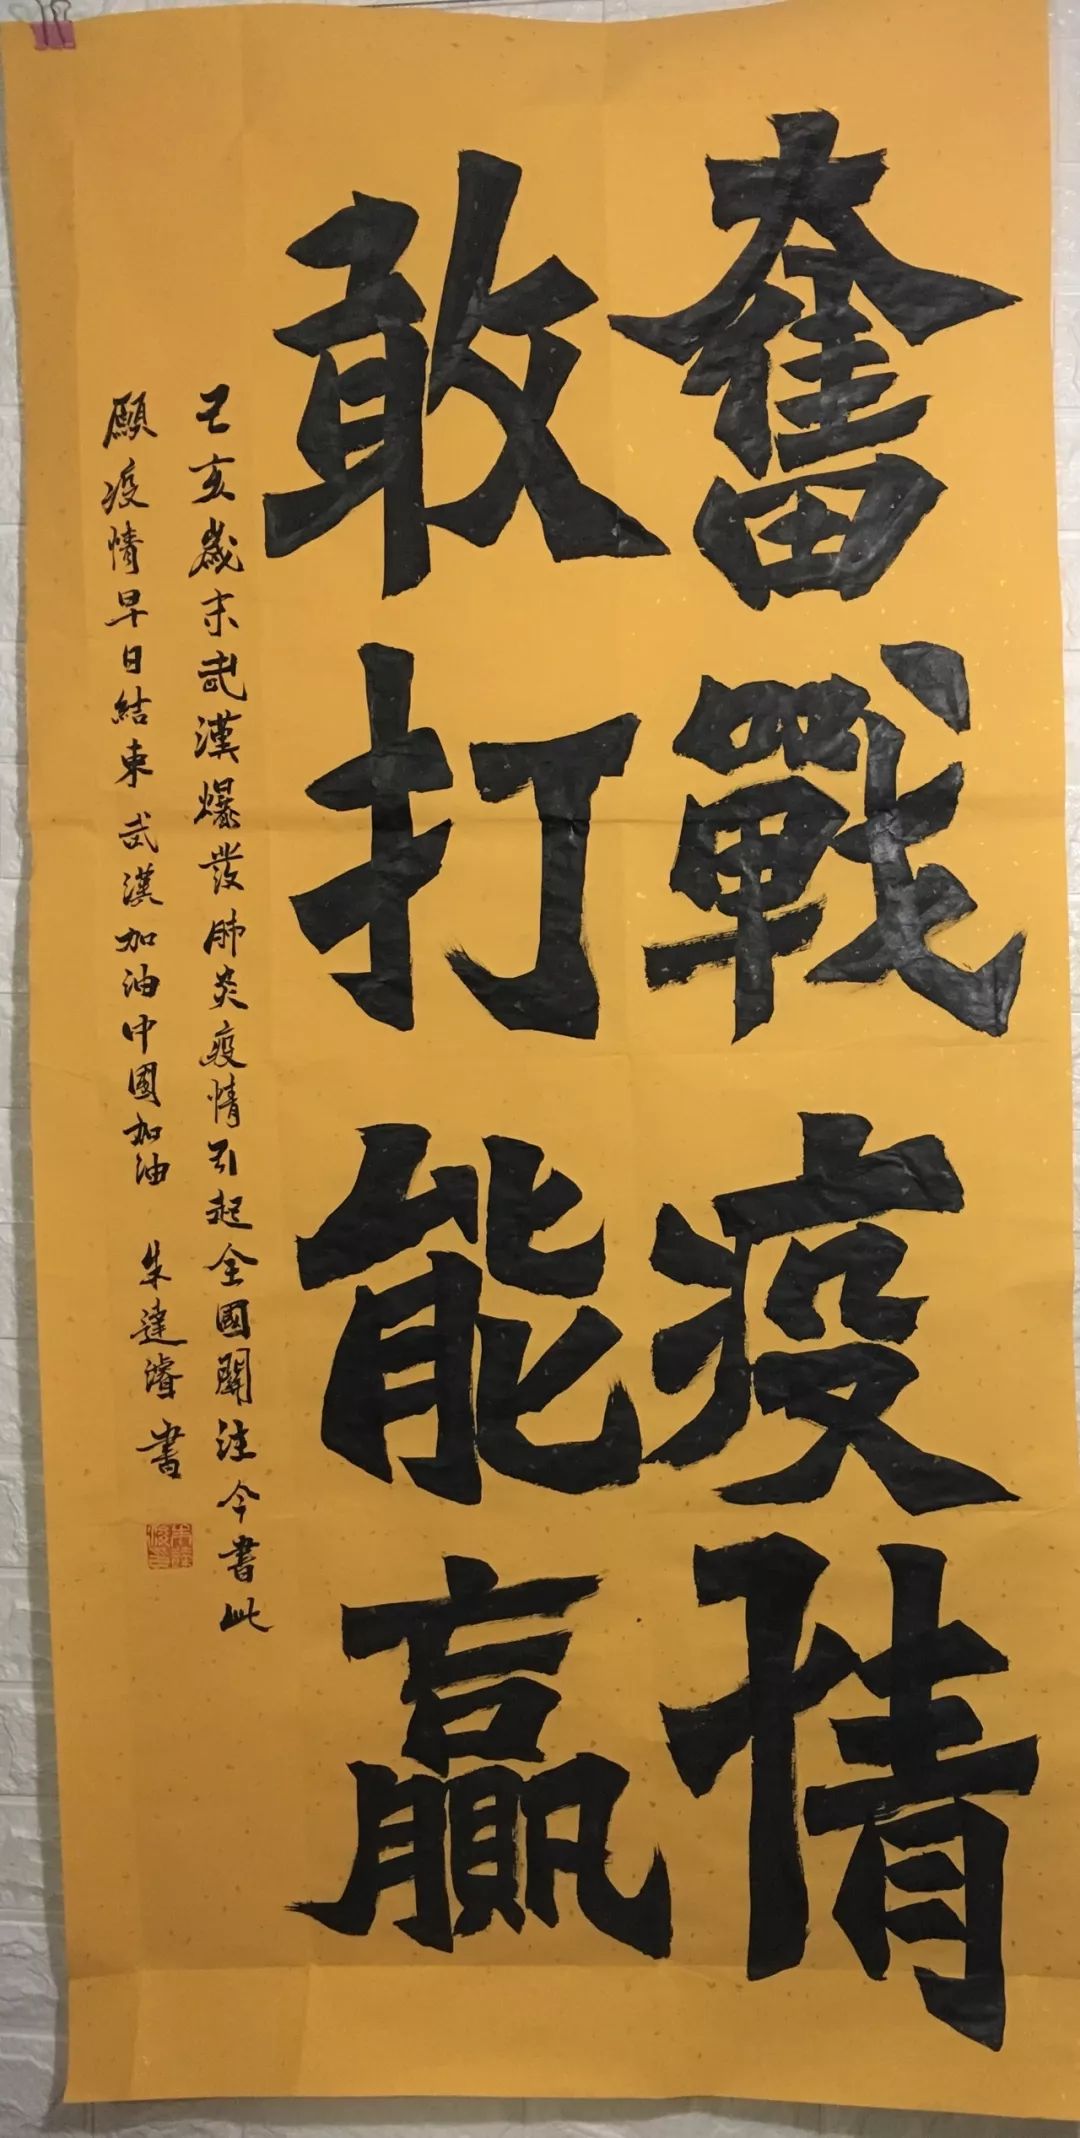 奮戰疫情
敢打能贏
己亥歲末武漢爆發肺炎疫情引起全國關注今書此
願疫情早日結束武漢加油中國加油 朱達濬書